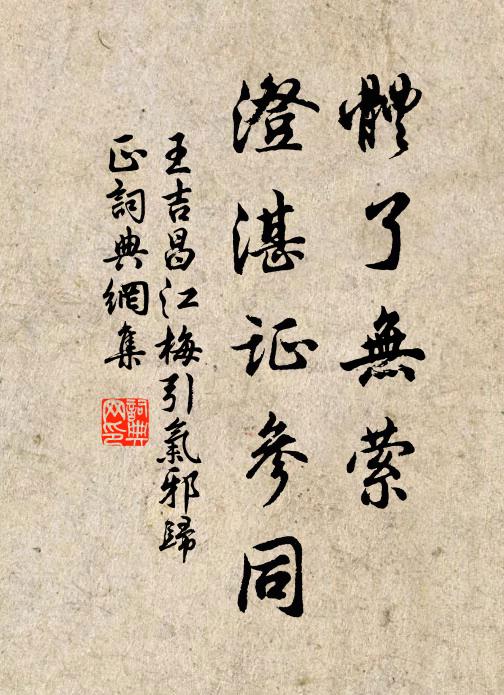 體了無縈
澄湛证參同
王吉昌江梅引氣邪歸
正詞典網集
詞典
网印